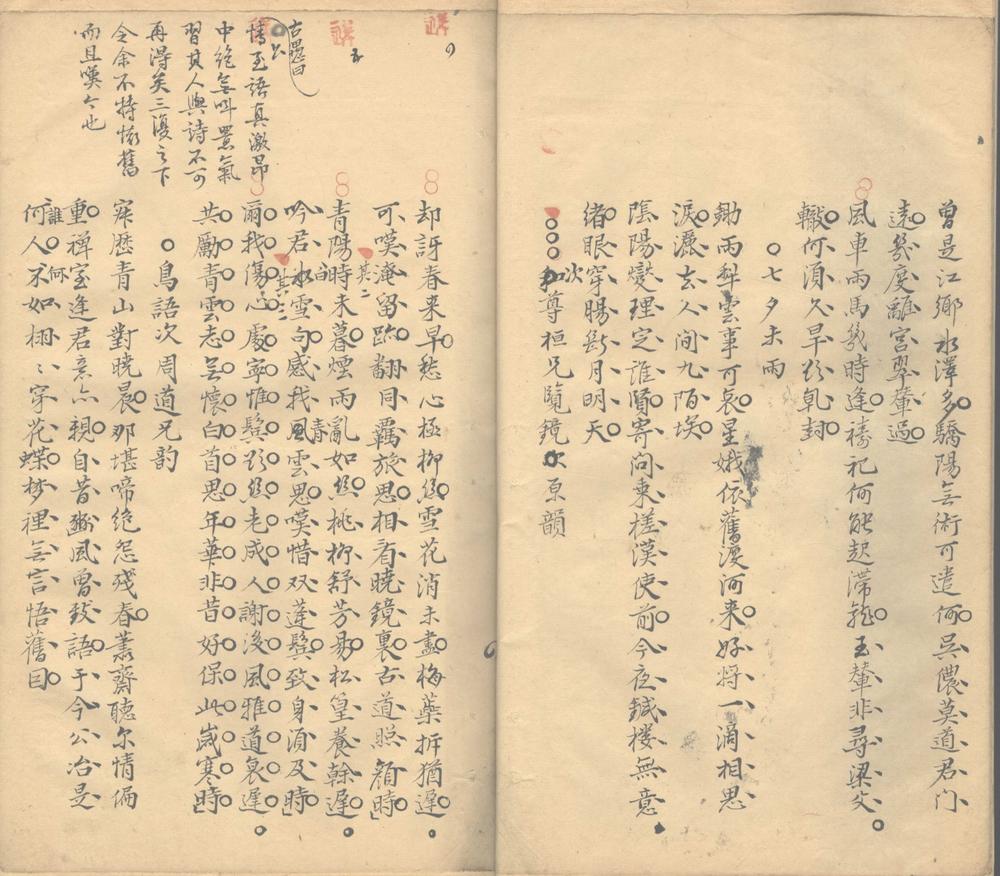 曾是江鄉水澤多驕陽無術可遣何吳儂莫道君门
遠幾度離宮翠輦過
風車雨馬幾時逢禱祀何能起滯龍玉輦非尋梁父
轍何須久旱欲乹封
七夕未雨
鋤雨犁雲事可哀星娥依舊渡河来好将一滴相思
淚灑去人间九陌埃
陰陽燮理定誰賢寄问東槎漢使前今夜鍼楼無意
緒眼穿腸斷月明天
次尊桓兄覽鏡原韻
却訝春来早愁心極柳絲雪花消未盡梅蘂拆猶遲
可嘆淹留臨翻同羈旅思相看曉鏡裏古道照顏時
其二
青陽時未暮煙雨亂如絲桃柳舒芳易松篁養榦遲
吟君冰雪句感我風雲思嘆惜双蓬鬓致身須及時
白
青
其三
爾我傷心處寧惟鬓欲絲老成人謝後風雅道衰遲
共勵青雲志無懷白首思年華非昔好保此歲寒時
鳥語次周道兄韵
寂歷青山對曉晨那堪啼絶怨殘春蕭齋聽尔情偏
重禅室逢君意亦親自昔豳風曾鼓語于今公冶是
何人不如栩ミ穿花蝶梦裡無言悟舊因
誰
何
古愚曰
博公至語真激昂
中絶無叫嚣氣
習其人與詩不可
再得矣三復之下
令余不特懷舊
而且嘆今也